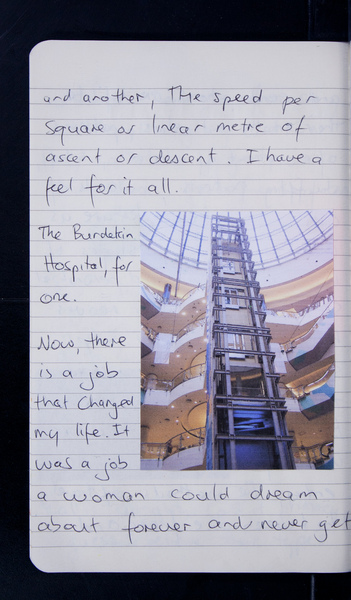 and another, The speed per
square or linear metre of
ascent or descent. I have a
feel for it all.
The Burdekin
Hospital, for
one.
Now, there
is a job
that changed
my life. It
was a job
a woman could dream
about forever and never get